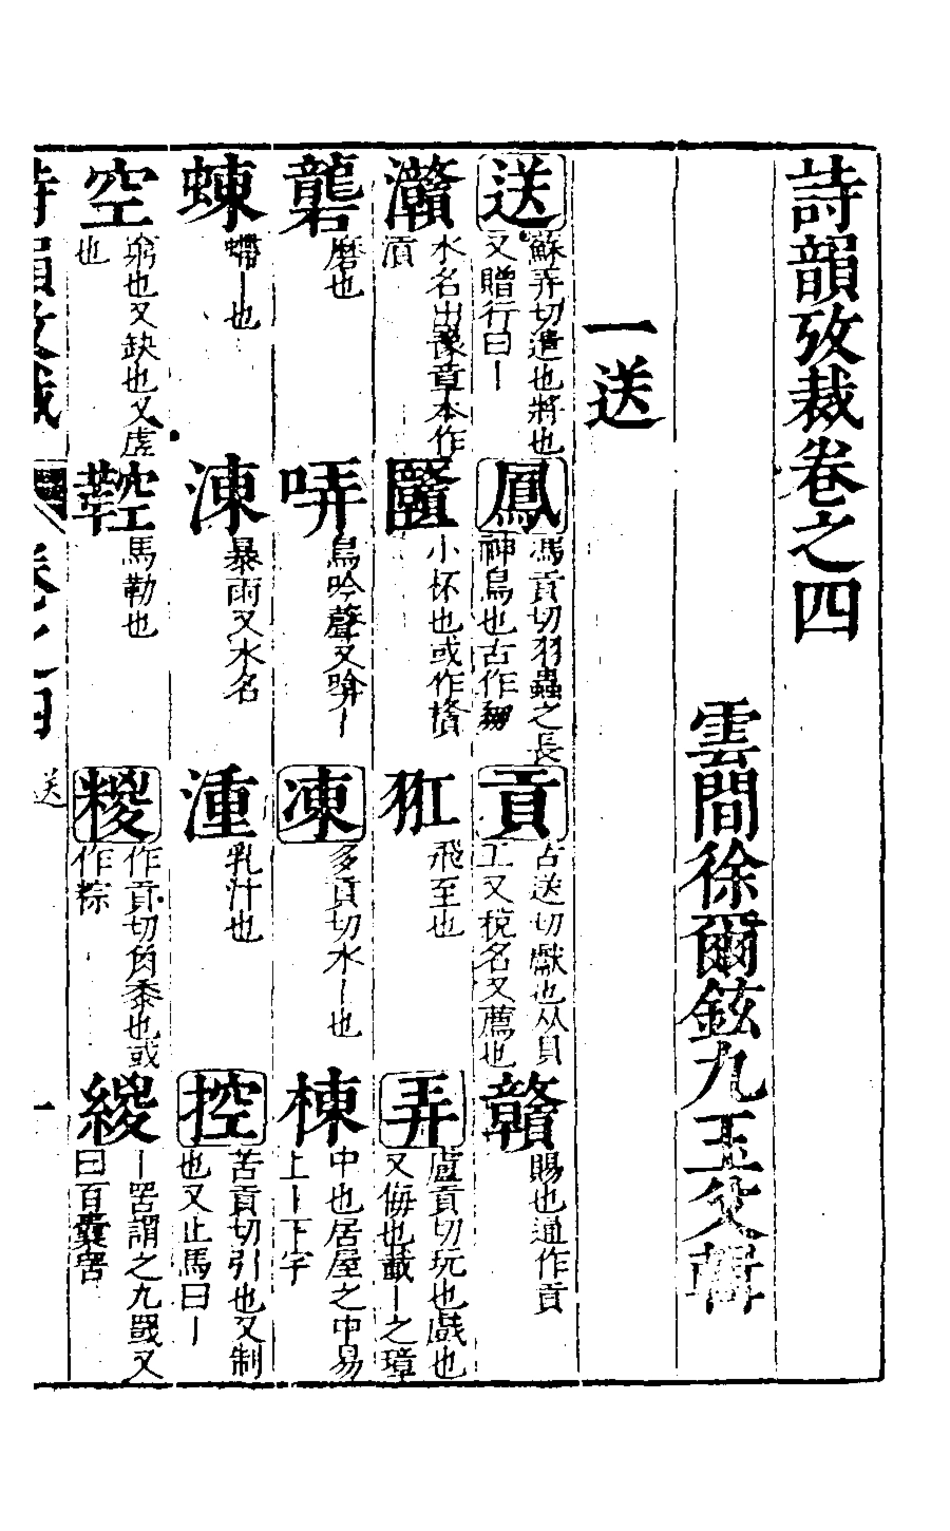 詩韻攷裁卷之四
雲間徐爾鉉九玉父輯
一送
送蘇弄切遣也將也又贈行曰丨 鳳馮貢切羽蟲之長神鳥也古作 貢古送切獻也从貝工又稅名又薦也 贛賜也通作貢
灨水名出豫章本作濆 小杯也或作 飛至也 弄盧貢切玩也戲也又侮也載丨之璋
礱磨也 哢鳥吟聲又哢丨 凍多貢切水丨也 棟中也居屋之中易上丨下宇
蝀螮丨也 涷暴雨又水名 湩乳汁也 控苦貢切引也又制也又止馬曰丨
空窮也又缺也又虛也 鞚馬勒也 糉作貢切角黍也或作粽 緵丨罟謂之九罭又曰百囊罟
詩韻攷裁 卷之四 送 一